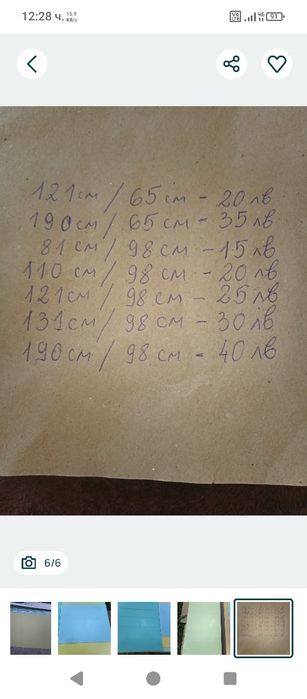 12:28 ч.
15.9
KB/s
91
121см / 65см - 20 лв
190см / 65 см - 35 лв
81 см / 98 см - 15 лв
110 см / 98 см - 20 лв
121см / 98 см - 25 лв
131см / 98 см - 30 лв
190см / 98 см - 40 лв
6/6